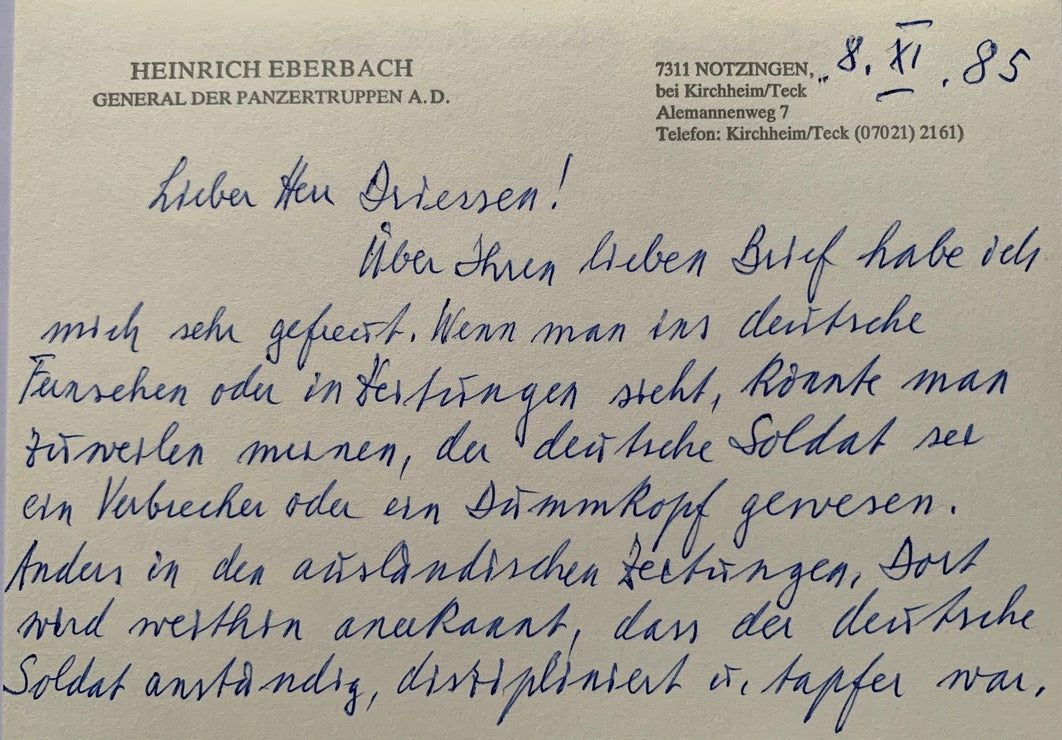 HEINRICH EBERBACH
GENERAL DER PANZERTRUPPEN A.D.
7311 NOTZINGEN, 8. XI. 85
bei Kirchheim/Teck
Alemannenweg 7
Telefon: Kirchheim/Teck (07021) 2161)
Lieber Herr Driessen!
Über Ihren lieben Brief habe ich
mich sehr gefreut. Wenn man ins deutsche
Fernsehen oder in Zeitungen sieht, könnte man
zuweilen meinen, der deutsche Soldat sei
ein Verbrecher oder ein Dummkopf gewesen.
Anders in den ausländischen Zeitungen. Dort
wird weithin anerkannt, dass der deutsche
Soldat anständig, diszipliniert u. tapfer war.